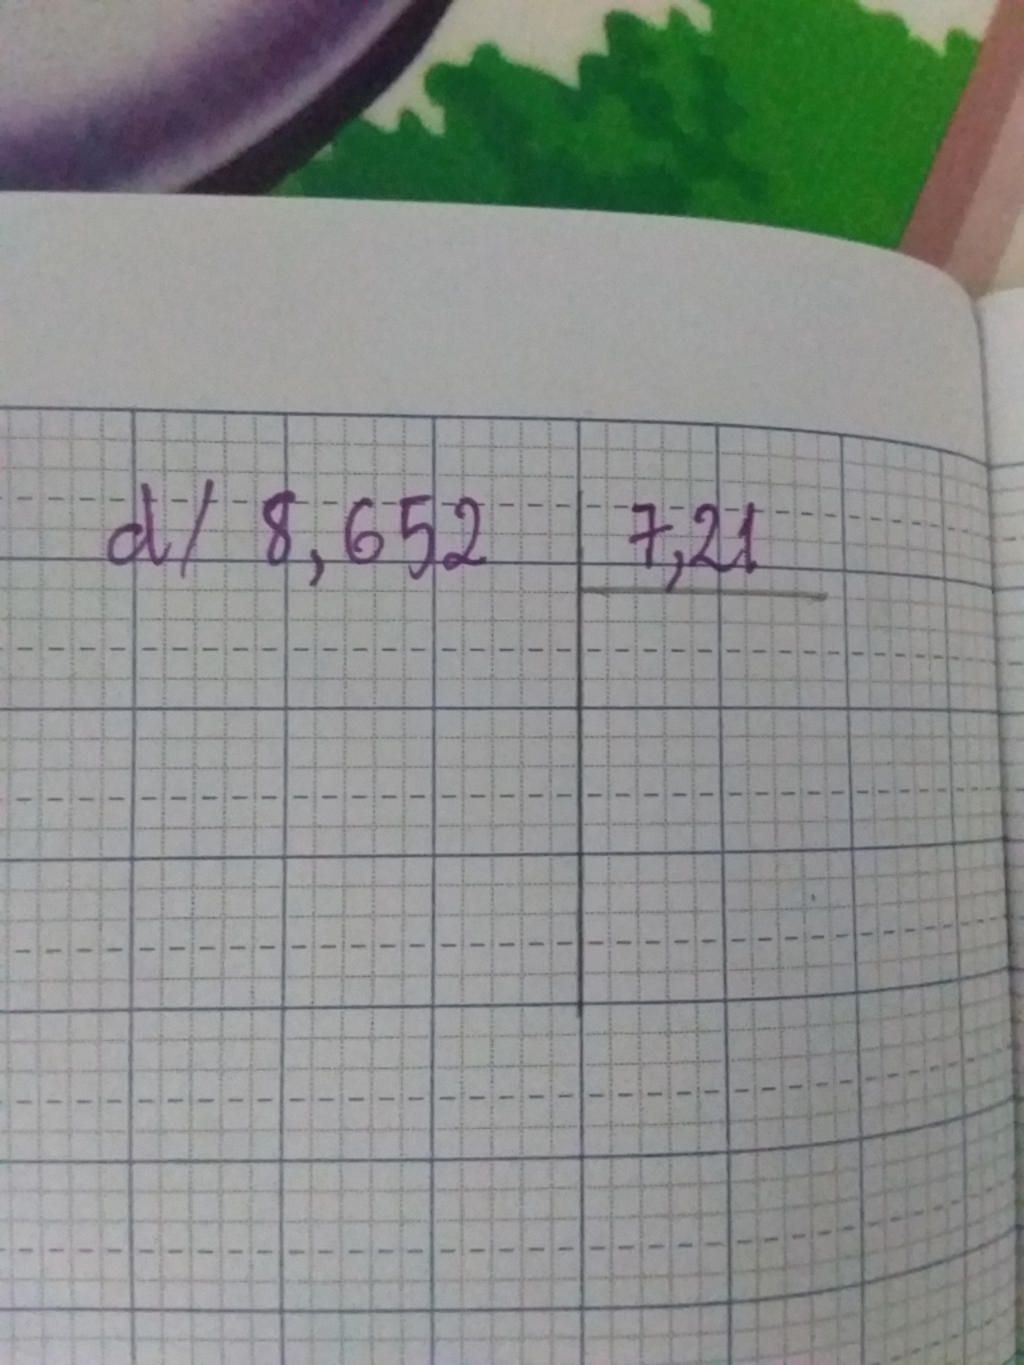 d/ 8,652 7,21